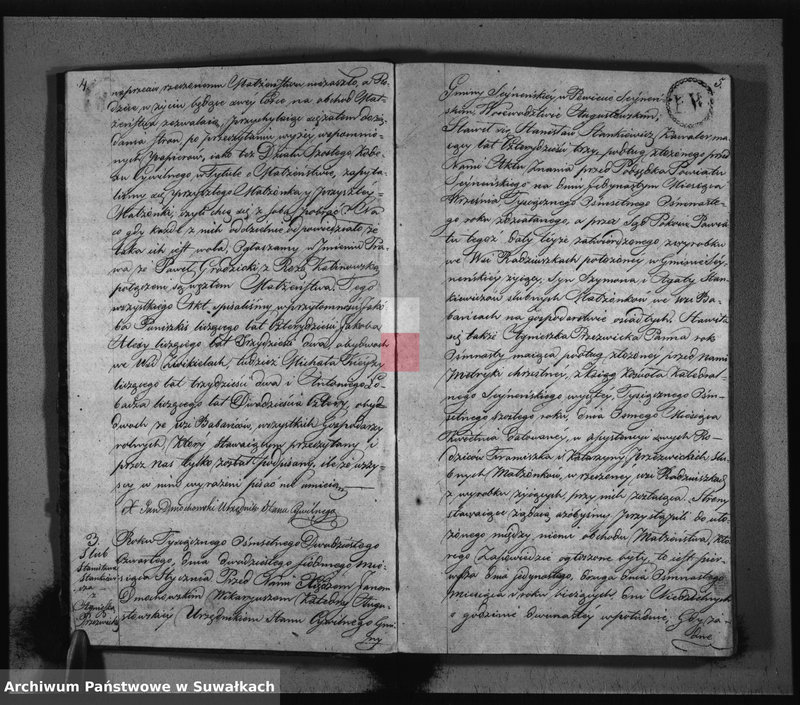 4.
wyprzeciw rzeczonemu Małżeństwu niezaszło, a Ro-
dzice w życiu będące swey Córce na obchód Mał-
żeństwa zezwalaią, przychylaiąc się zatem do żą-
dania Stron, po przeczytaniu wyżey wspomnio-
nych Papierów, iako też Działu Szóstego Kode-
xu Cywilnego, w tytule o Małżeństwie, zapyta-
liśmy się przyszłego Małżonka y przyszłey
Małżonki, czyli chcą się z sobą pobrać? Na
co gdy każde z nich oddzielnie odpowiedziało że
taka ich iest wola, Ogłaszamy w Imieniu Pra-
wa że Paweł Grodzicki z Rozą Kalinowską
połączeni są węzłem Małżeństwa. Tego
wszystkiego Akt spisaliśmy w przytomności Jakó-
ba Puniszkis liczącego lat Czterdzieści, Jakoba
liczącego lat Trzydzieści dwa, obydwóch
we Wsi Zwikielach, tudzież Michała
liczącego lat trzydzieści dwa i Antoniego
liczącego lat Dwadzieścia Cztery, obyd-
dwóch ze wsi Babańców, wszystkich Gospodarzy
rolnych, Który stawaiącym przeczytany i
przez nas tylko został podpisany, ile że wszy-
scy w nim wyrażeni pisać nie umieią
X Jan Dmochowski Urzędnik Stanu Cywilnego
3.
Slub
Stanisława
Stankiewi-
cza
z
Agnieszką
Przezwicką
Roku Tysiącznego Ośmsetnego Dwudziestego
Czwartego, dnia dwudziestego siódmego Mie-
siąca Stycznia. Przed Nami Xiędzem Janem
Dmochowskim Wikaryuszem Katedry Augu-
stowskiey Urzędnikiem Stanu Cywilnego Gmi-
ny
5.
F W
Gminy Seyneńskiey w Powiecie Seyneń-
skim, Woiewództwie Augustowskim,
Stawił się Stanisław Stankiewicz, Kawaler, ma-
iący lat Czterdzieści trzy, podług złożonego przed
Nami Aktu Znania przed Podsędka Powiatu
Seyneńskiego na dniu siedmnastym Miesiąca
Września Tysiącznego Ośmsetnego Ośmnaste-
go roku zdziałanego, a przez Sąd Pokoiu Powia-
tu tegoż daty teyże zatwierdzonego, z wyrobku
we Wsi Radziuszkach położoney w Gminie Sey-
neńskiey żyiący, Syn Szymona i Agaty Stan-
kiewiczów ślubnych Małżonków we Wsi Ba-
bańcach na gospodarstwie osiadłych. Stawiła
się także Agnieszka Przezwicka Panna rok
Ośmnasty maiąca podług złożoney przed Nami
Metryki chrzestney, z ksiąg Kościoła Katedral-
nego Seyneńskiego wyiętey, Tysiącznego Ośm-
setnego szóstego roku, dnia Osmego Miesiąca
Kwietnia datowaney, w assystencyi swych Ro-
dziców Franciszka i Katarzyny Przezwickich ślu-
bnych Małżonków, w rzeczoney wsi Radziuszkach
z wyrobku żyiących przy nich zostaiąca. Strony
stawaiące żądaią ażebyśmy przystąpili do uło-
żonego między niemi obchodu Małżeństwa, Któ-
rego Zapowiedzie ogłoszone były, to iest: pier-
wsza dnia iedynastego, druga dnia Ośmnastego
Miesiąca i roku bieżących dni Niedzielnych
o godzinie dwunastey w południe. Gdy ża-
dne
Archiwum Państwowe w Suwałkach